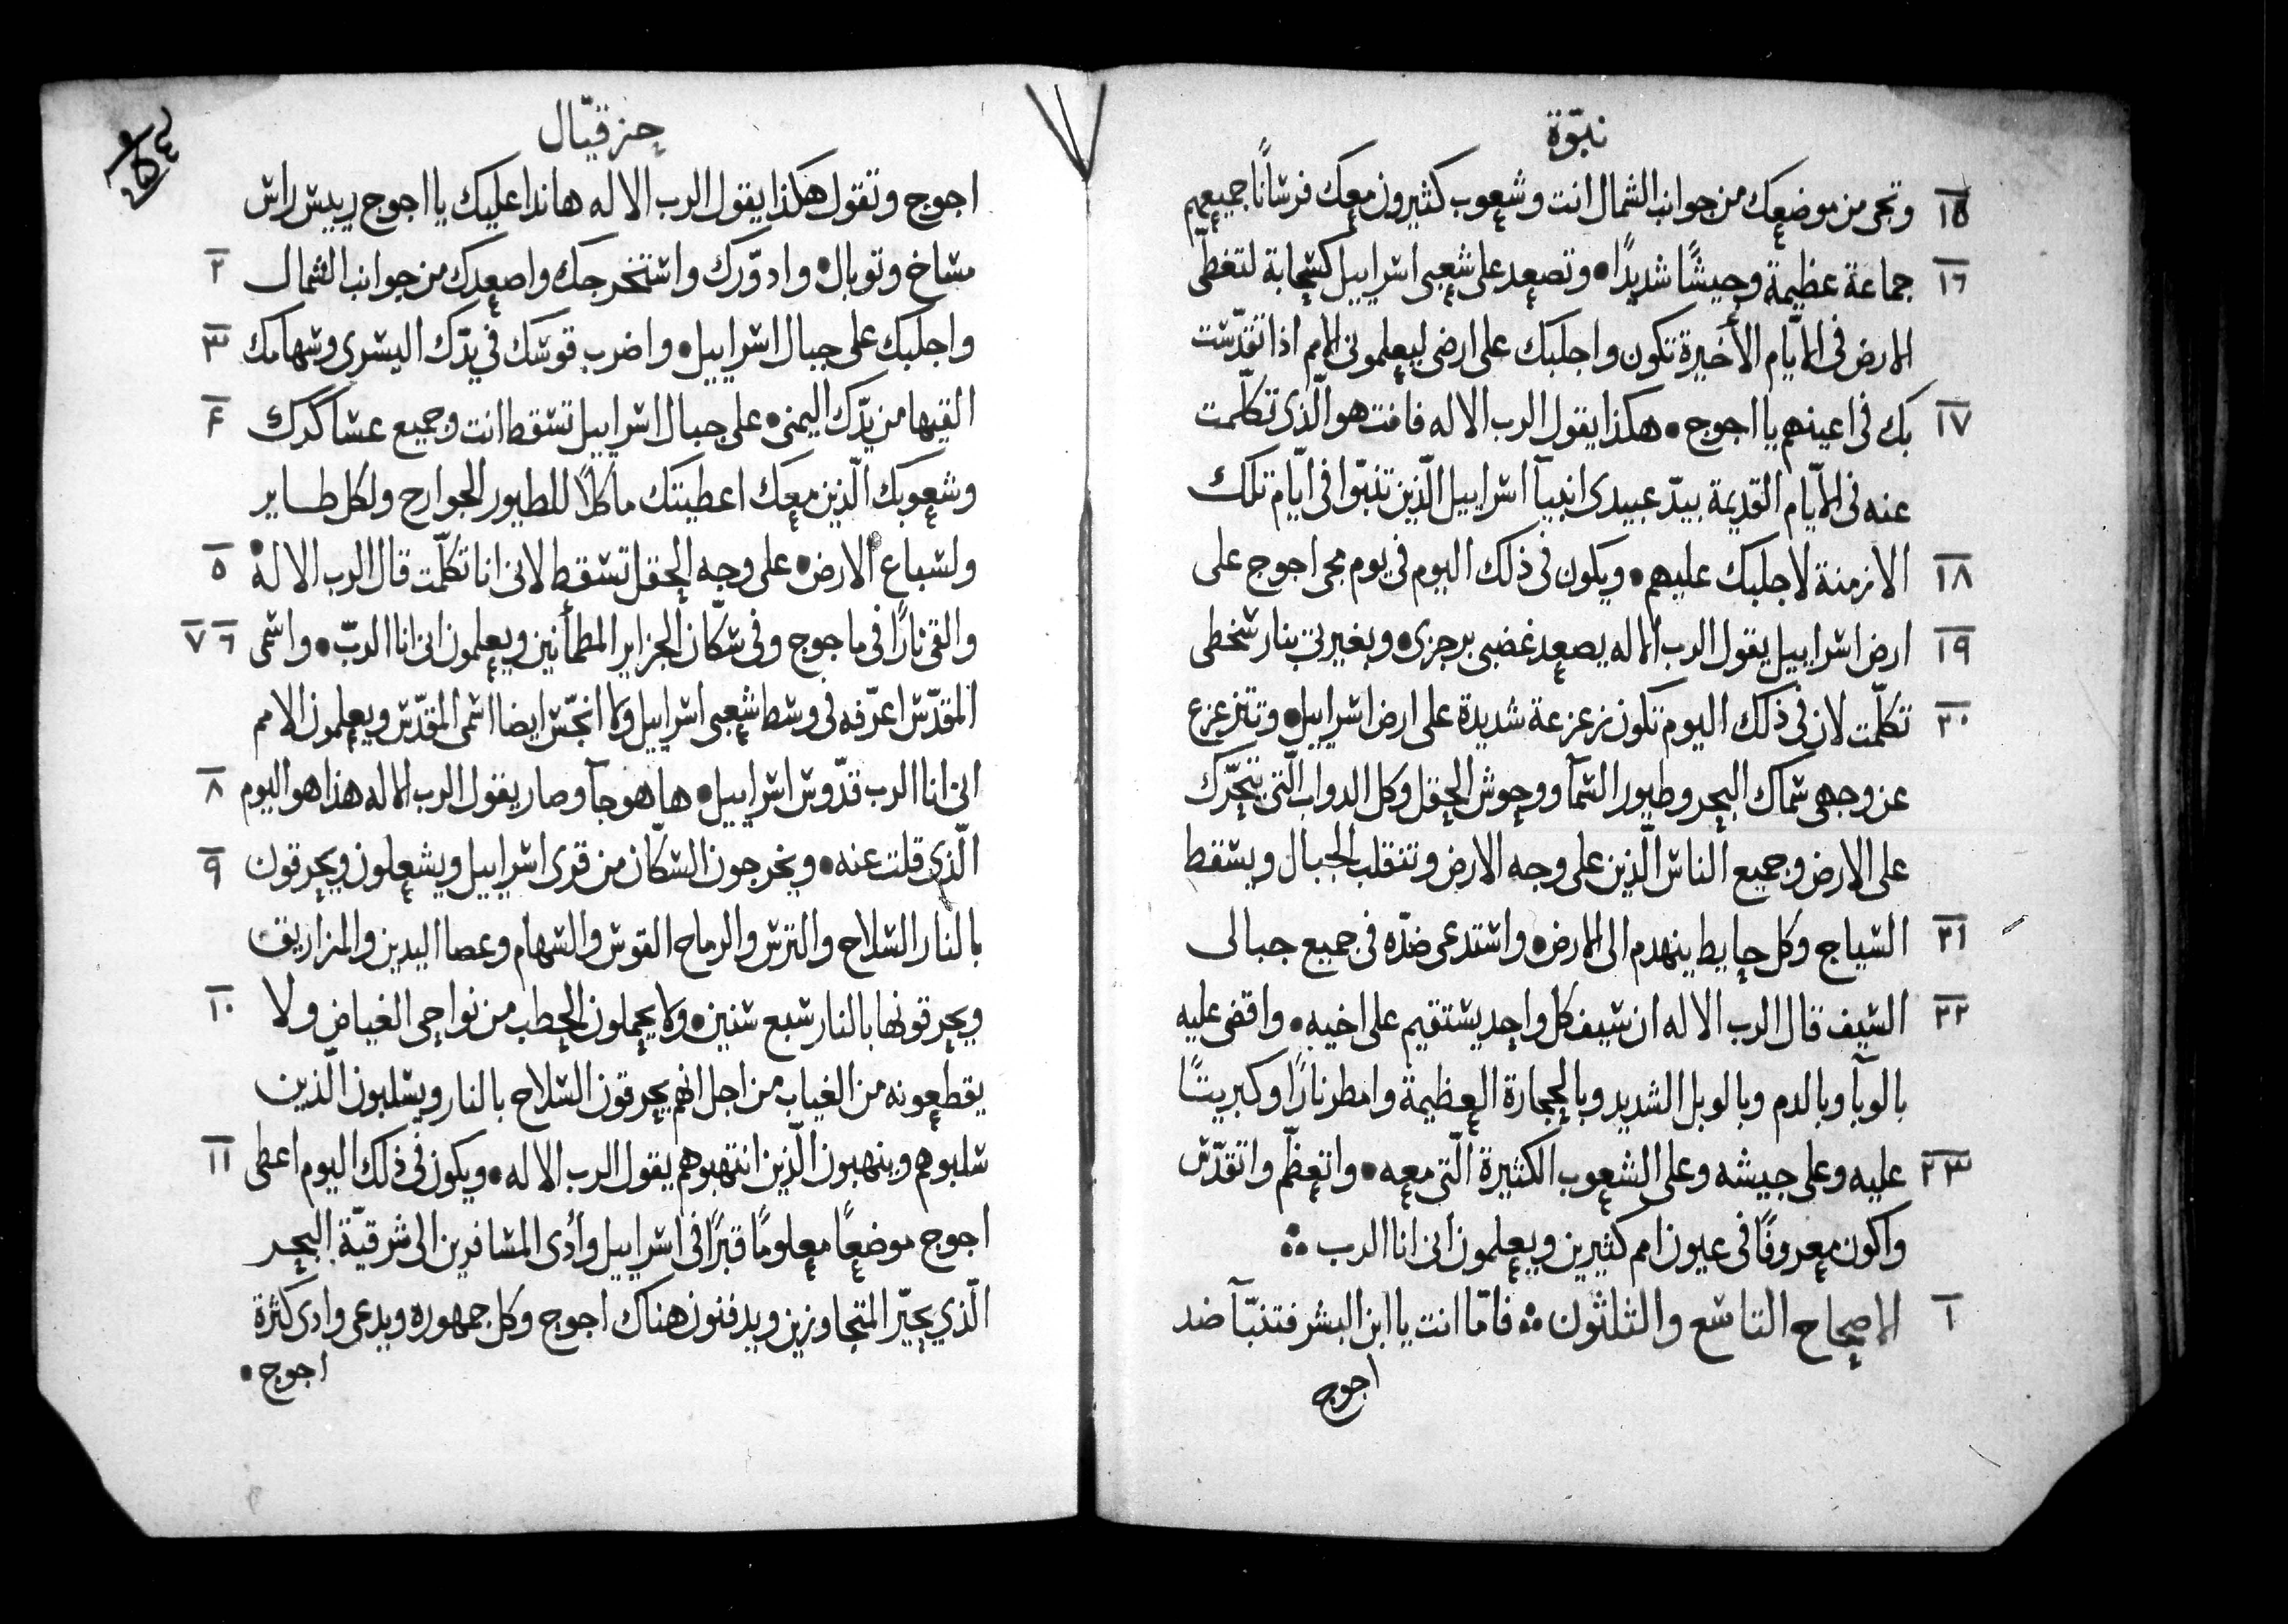 نبوّة
١٥ وتجى من موضعك من جوانب الشمال انت وشعوب كثيرون معك فرسانًا جميعهم
١٦ جماعة عظيمة وجيشًا شديدًا • وتصعد على شعبى اسراييل كسحابة لتغطّى
الارض فى الايّام الأخيرة تكون واجلبك على ارضى ليعلمونى الامم اذا تقدّست
١٧ بك فى اعينهم يا اجوج • هكذا يقول الرب الاله فانت هو الّذى تكلّمت
عنه فى الايّام القديمة بيدّ عبيدى انبيآ اسراييل الّذين تنبّوا فى ايّام تلك
١٨ الازمنة لاجلبك عليهم • ويكون فى ذلك اليوم فى يوم مجى اجوج على
١٩ ارض اسراييل يقول الرب الاله يصعد غضبى برجزى • وبغيرتى بنار سخطى
٢٠ تكلّمت لان فى ذلك اليوم تكون زعزعة شديدة على ارض اسراييل • وتتزعزع
عن وجهى سماك البحر وطيور السمآ ووحوش الحقل وكل الدواب الّتى تتحرّك
على الارض وجميع الناس الّذين على وجه الارض وتنقلب الجبال ويسقط
٢١ السياج وكل حايط ينهدم الى الارض • واستدعى ضدّه فى جميع جبالى
٢٢ السيف قال الرب الاله ان سيف كل واحد يستقيم على اخيه • واقضى عليه
بالوبآ وبالدم وبالوبل الشديد وبالحجارة العظيمة وامطر نارًا وكبريتًا
٢٣ عليه وعلى جيشه وعلى الشعوب الكثيرة الّتى معه • واتعظّم واتقدّس
واكون معروفًا فى عيون امم كثيرين ويعلمون انى انا الرب ۞
١ الاصحاح التاسع والثلثون ۞ فامّا انت يا ابن البشر فتنبّآ ضد
اجوج
حزقيّال
اجوج وتقول هكذا يقول الرب الاله هانذا عليك يا اجوج رييس راس
٢ مشاخ وتوبال • وادوّرك واستخرجك واصعدك من جوانب الشمال
٣ واجلبك على جبال اسراييل • واضرب قوسك فى يدّك اليسرى وسهامك
٤ القيها من يدّك اليمنى • على جبال اسراييل تسقط انت وجميع عساكرك
وشعوبك الّذين معك اعطيتك ماكلًا للطيور الجوارح ولكل طاير
٥ ولسباع الارض • على وجه الحقل تسقط لانى انا تكلّمت قال الرب الاله •
٦ ٧ والقى نارًا فى ماجوج وفى سكّان الجزاير المطمأنين ويعلمون انى انا الربّ • واسمى
المقدّس اعرّفه فى وسط شعبى اسراييل ولا انجّس ايضا اسمى المقدّس ويعلمون الامم
٨ انى انا الرب قدّوس اسراييل • ها هو جآ وصار يقول الرب الاله هذا هو اليوم
٩ الّذى قلت عنه • ويخرجون السكّان من قرى اسراييل ويشعلون ويحرقون
بالنار السلاح والترس والرماح القوس والسهام وعصا اليدين والمزاريق
١٠ ويحرقونها بالنار سبع سنين • ولا يحملون الحطب من نواحى الغياض ولا
يقطعونه من الغياب من اجل انهم يحرقون السلاح بالنار ويسلبون الّذين
١١ سلبوهم وينهبون الّذين انتهبوهم يقول الرب الاله • ويكون فى ذلك اليوم اعطى
اجوج موضعًا معلومًا قبرًا فى اسراييل وأدى المسافرين الى شرقيّة البحر
الّذى يحيّر المتجاوزين ويدفنون هناك اجوج وكل جمهوره ويدعى وادى كثرة
اجوج •